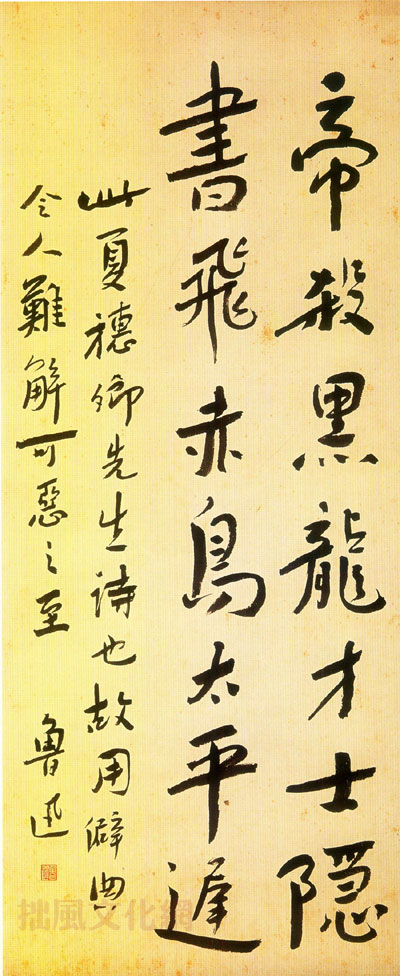 帝殺黑龍才士隱
書飛赤鳥太平遲
此夏穗卿先生詩也故用僻典
令人難解可惡之至
魯迅
拙風文化網